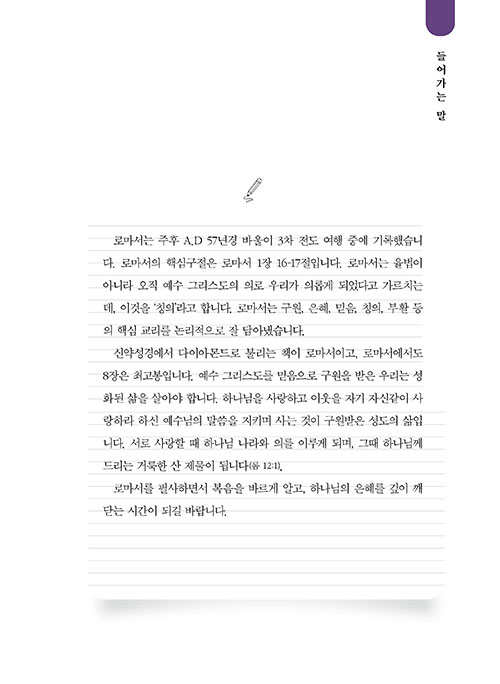 들어가는 말
로마서는 주후 A.D 57년경 바울이 3차 전도 여행 중에 기록했습니
다. 로마서의 핵심구절은 로마서 1장 16-17절입니다. 로마서는 율법이
아니라 오직 예수 그리스도의 의로 우리가 의롭게 되었다고 가르치는
데, 이것을 '칭의'라고 합니다. 로마서는 구원, 은혜, 믿음, 칭의, 부활 등
의 핵심 교리를 논리적으로 잘 담아냈습니다.
신약성경에서 다이아몬드로 불리는 책이 로마서이고, 로마서에서도
8장은 최고봉입니다. 예수 그리스도를 믿음으로 구원을 받은 우리는 성
화된 삶을 살아야 합니다. 하나님을 사랑하고 이웃을 자기 자신같이 사
랑하라 하신 예수님의 말씀을 지키며 사는 것이 구원받은 성도의 삶입
니다. 서로 사랑할 때 하나님 나라와 의를 이루게 되며, 그때 하나님께
드리는 거룩한 산 제물이 됩니다(롬 12:1).
로마서를 필사하면서 복음을 바르게 알고, 하나님의 은혜를 깊이 깨
닫는 시간이 되길 바랍니다.